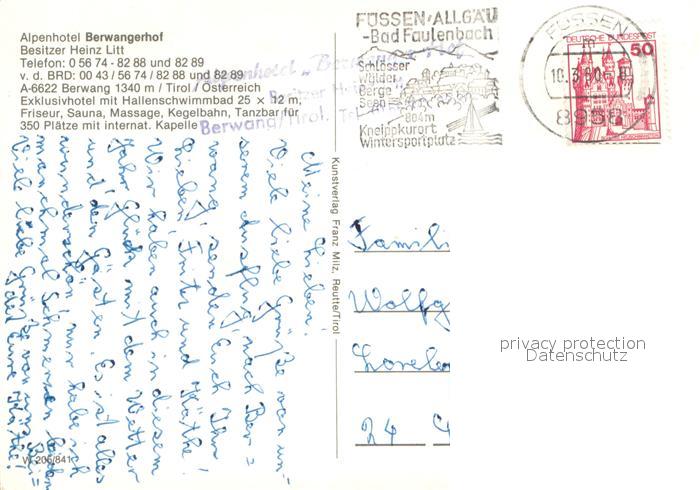 Alpenhotel Berwangerhof
Besitzer Heinz Litt
Telefon: 0 56 74 - 82 88 und 82 89
v. d. BRD: 00 43 / 56 74 / 82 88 und 82 89
A-6622 Berwang 1340 m / Tirol / Österreich
Exklusivhotel mit Hallenschwimmbad 25 x 12 m,
Friseur, Sauna, Massage, Kegelbahn, Tanzbar für
350 Plätze mit internat. Kapelle
Besitzer
Berwang/Tirol, Tel.
FÜSSEN/ALLGÄU
-Bad Faulenbach
Schlösser
Wälder
Berge
Seen
804m
Kneippkurort
Wintersportplatz
FÜSSEN
8958
DEUTSCHE BUNDESPOST
50
Meine Lieben!
Viele liebe Grüße von un-
serem Ausflug nach Ber-
wang, senden Euch Ihr
Lieben, Fritz und Käthe!
Wir haben auch in diesem
Jahr Glück mit dem Wetter
und den Gästen. Es ist alles
wunderschön, nur habe ich
manchmal Schmerzen beim
Viele liebe Grüße von uns
Eure Käthe!
W 205/841
Kunstverlag Franz Milz, Reutte/Tirol
Famili
Wolfg
24
privacy protection
Datenschutz